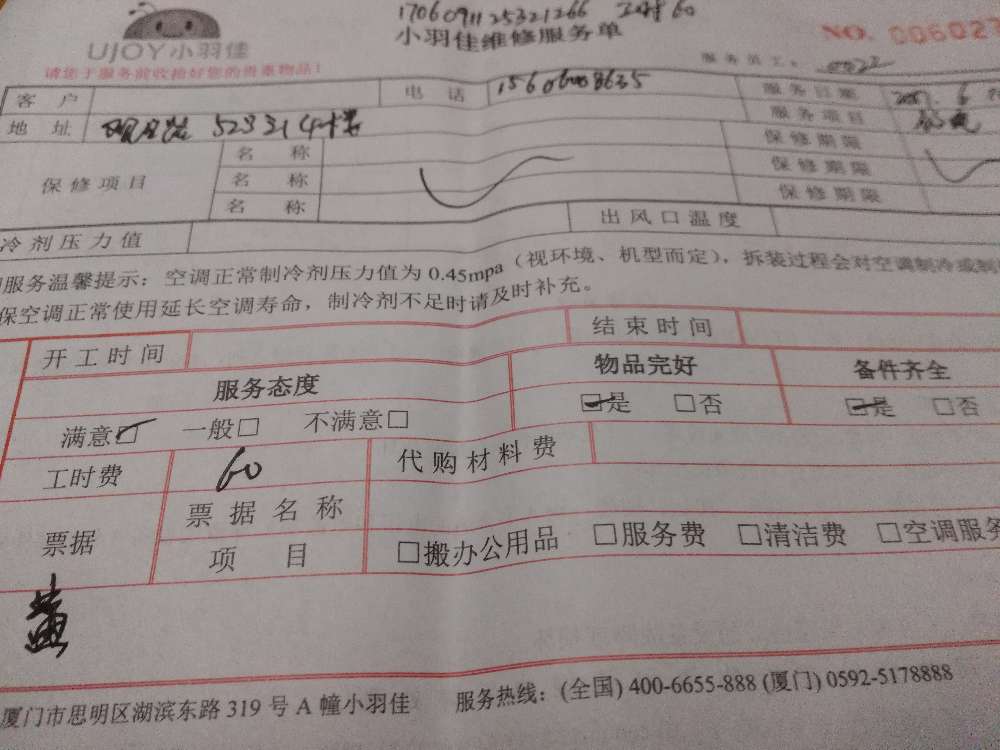 1706091125321266 工时60
UJOY小羽佳
小羽佳维修服务单
NO. 006027
请您于服务前收拾好您的贵重物品!
服务员工:
客户 电话 15606008635 服务日期 2017. 6
地址 5233 服务项目
保修项目 名称 保修期限
名称 保修期限
名称 保修期限
冷剂压力值 出风口温度
服务温馨提示:空调正常制冷剂压力值为0.45mpa(视环境、机型而定),拆装过程会对空调制冷或制
保空调正常使用延长空调寿命,制冷剂不足时请及时补充。
开工时间 结束时间
服务态度 物品完好 备件齐全
满意☑ 一般□ 不满意□ ☑是 □否 ☑是 □否
工时费 60 代购材料费
票据 票据名称
项目 □搬办公用品 □服务费 □清洁费 □空调服务
厦门市思明区湖滨东路319号A幢小羽佳 服务热线:(全国)400-6655-888(厦门)0592-5178888